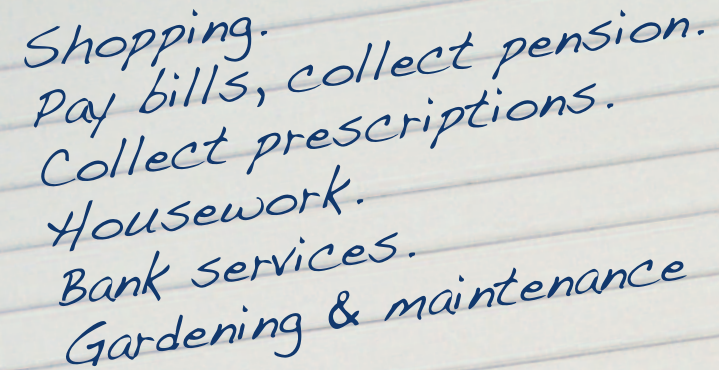 Shopping.
Pay bills, collect pension.
Collect prescriptions.
Housework.
Bank services.
Gardening & maintenance